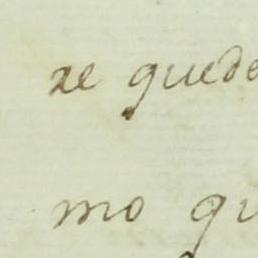 xe quede
mo qu